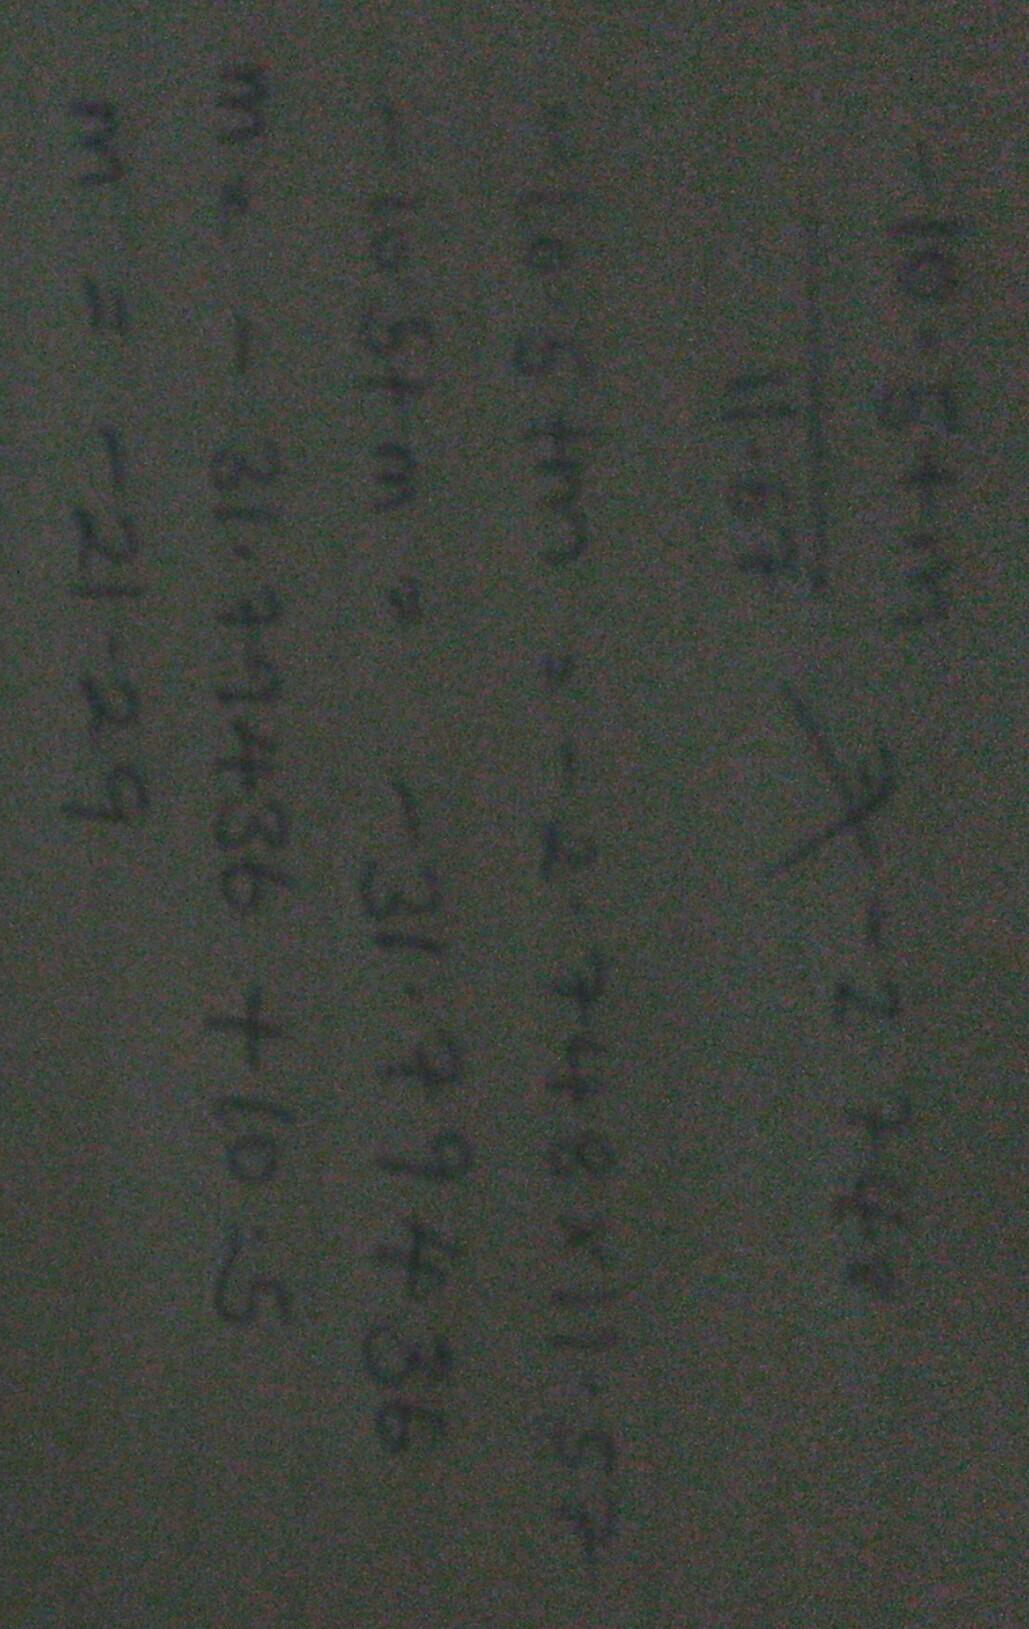 -10.5+m
11.57
-2.748
-10.5+m = -2.748x11.57
-10.5+m = -31.79436
m = -31.79436 + 10.5
m = -21.29